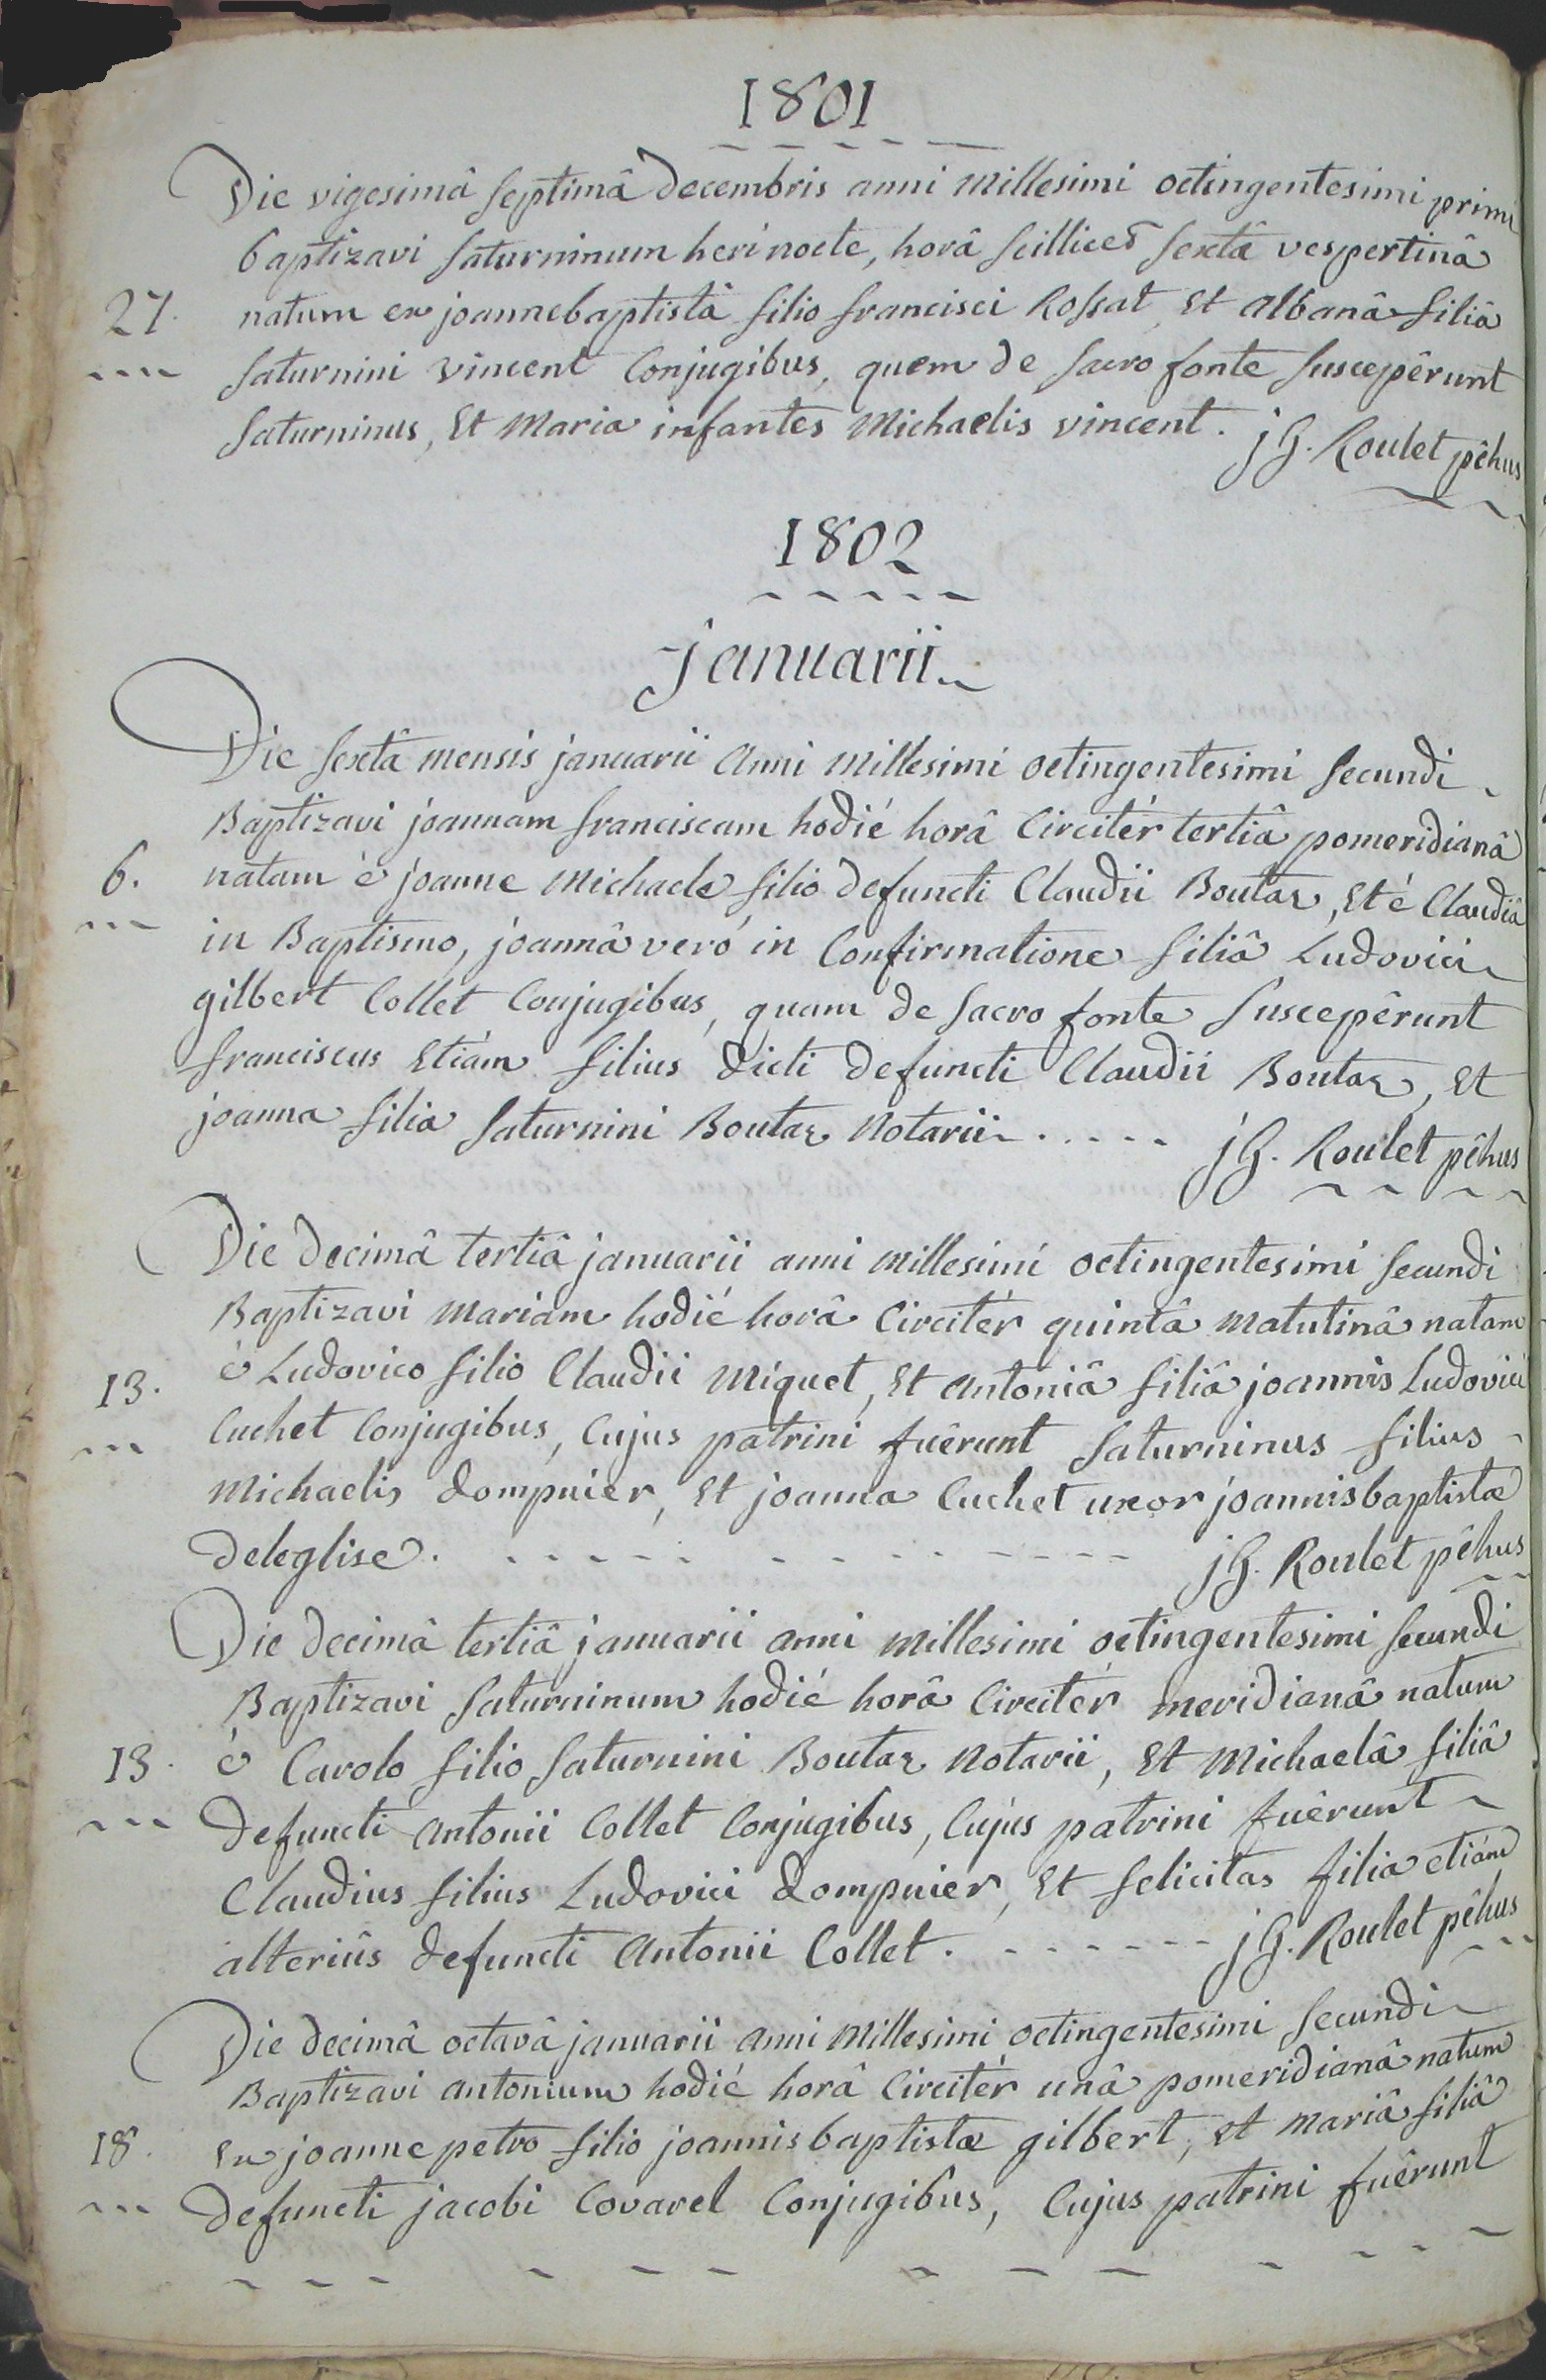 1801
Die vigesimâ septimâ decembris anni millesimi octingentesimi primi
baptizavi saturninum heri nocte, horâ scillicet sextâ vespertinâ
27. natum ex joannebaptistâ filio francisci Rossat, Et albanâ filiâ
saturnini vincent Conjugibus, quem de sacro fonte suscepêrunt
saturninus, Et Maria infantes Michaelis vincent. jG. Roulet pêhus
1802
januarii
Die sextâ mensis januarii anni millesimi octingentesimi secundi
Baptizavi joannam franciscam hodié horâ Circitér tertiâ pomeridianâ
6. natam è joanne Michaele filio defuncti Claudii Boutaz, Et é Claudiâ
in Baptismo, joannâ veró in Confirmatione filiâ Ludovici
gilbert Collet Conjugibus, quam de sacro fonte suscepêrunt
franciscus Etiám filius dicti defuncti Claudii Boutaz, Et
joanna filia saturnini Boutaz Notarii. jG. Roulet pêhus
Die decimâ tertiâ januarii anni millesimi octingentesimi secundi
Baptizavi mariam hodié horâ Circitér quintâ matutinâ natam
13. è Ludovico filio Claudii Miquet, Et antoniâ filiâ joannis Ludovici
Cuchet Conjugibus, Cujus patrini fuêrunt saturninus filius
Michaelis dompnier, Et joanna Cuchet uxor joannisbaptistæ
deleglise. jG. Roulet pêhus
Die decimâ tertiâ januarii anni millesimi octingentesimi secundi
Baptizavi saturninum hodié horâ Circitér meridianâ natum
13. è Carolo filio saturnini Boutaz Notarii, Et Michaelâ filiâ
defuncti antonii Collet Conjugibus, Cujus patrini fuêrunt
Claudius filius Ludovici dompnier, Et felicitas filia etiám
alteriûs defuncti Antonii Collet. jG. Roulet pêhus
Die decimâ octavâ januarii anni millesimi octingentesimi secundi
Baptizavi antonium hodié horâ Circitér unâ pomeridianâ natum
18. Ex joanne petro filio joannisbaptistæ gilbert, Et mariâ filiâ
defuncti jacobi Covarel Conjugibus, Cujus patrini fuêrunt